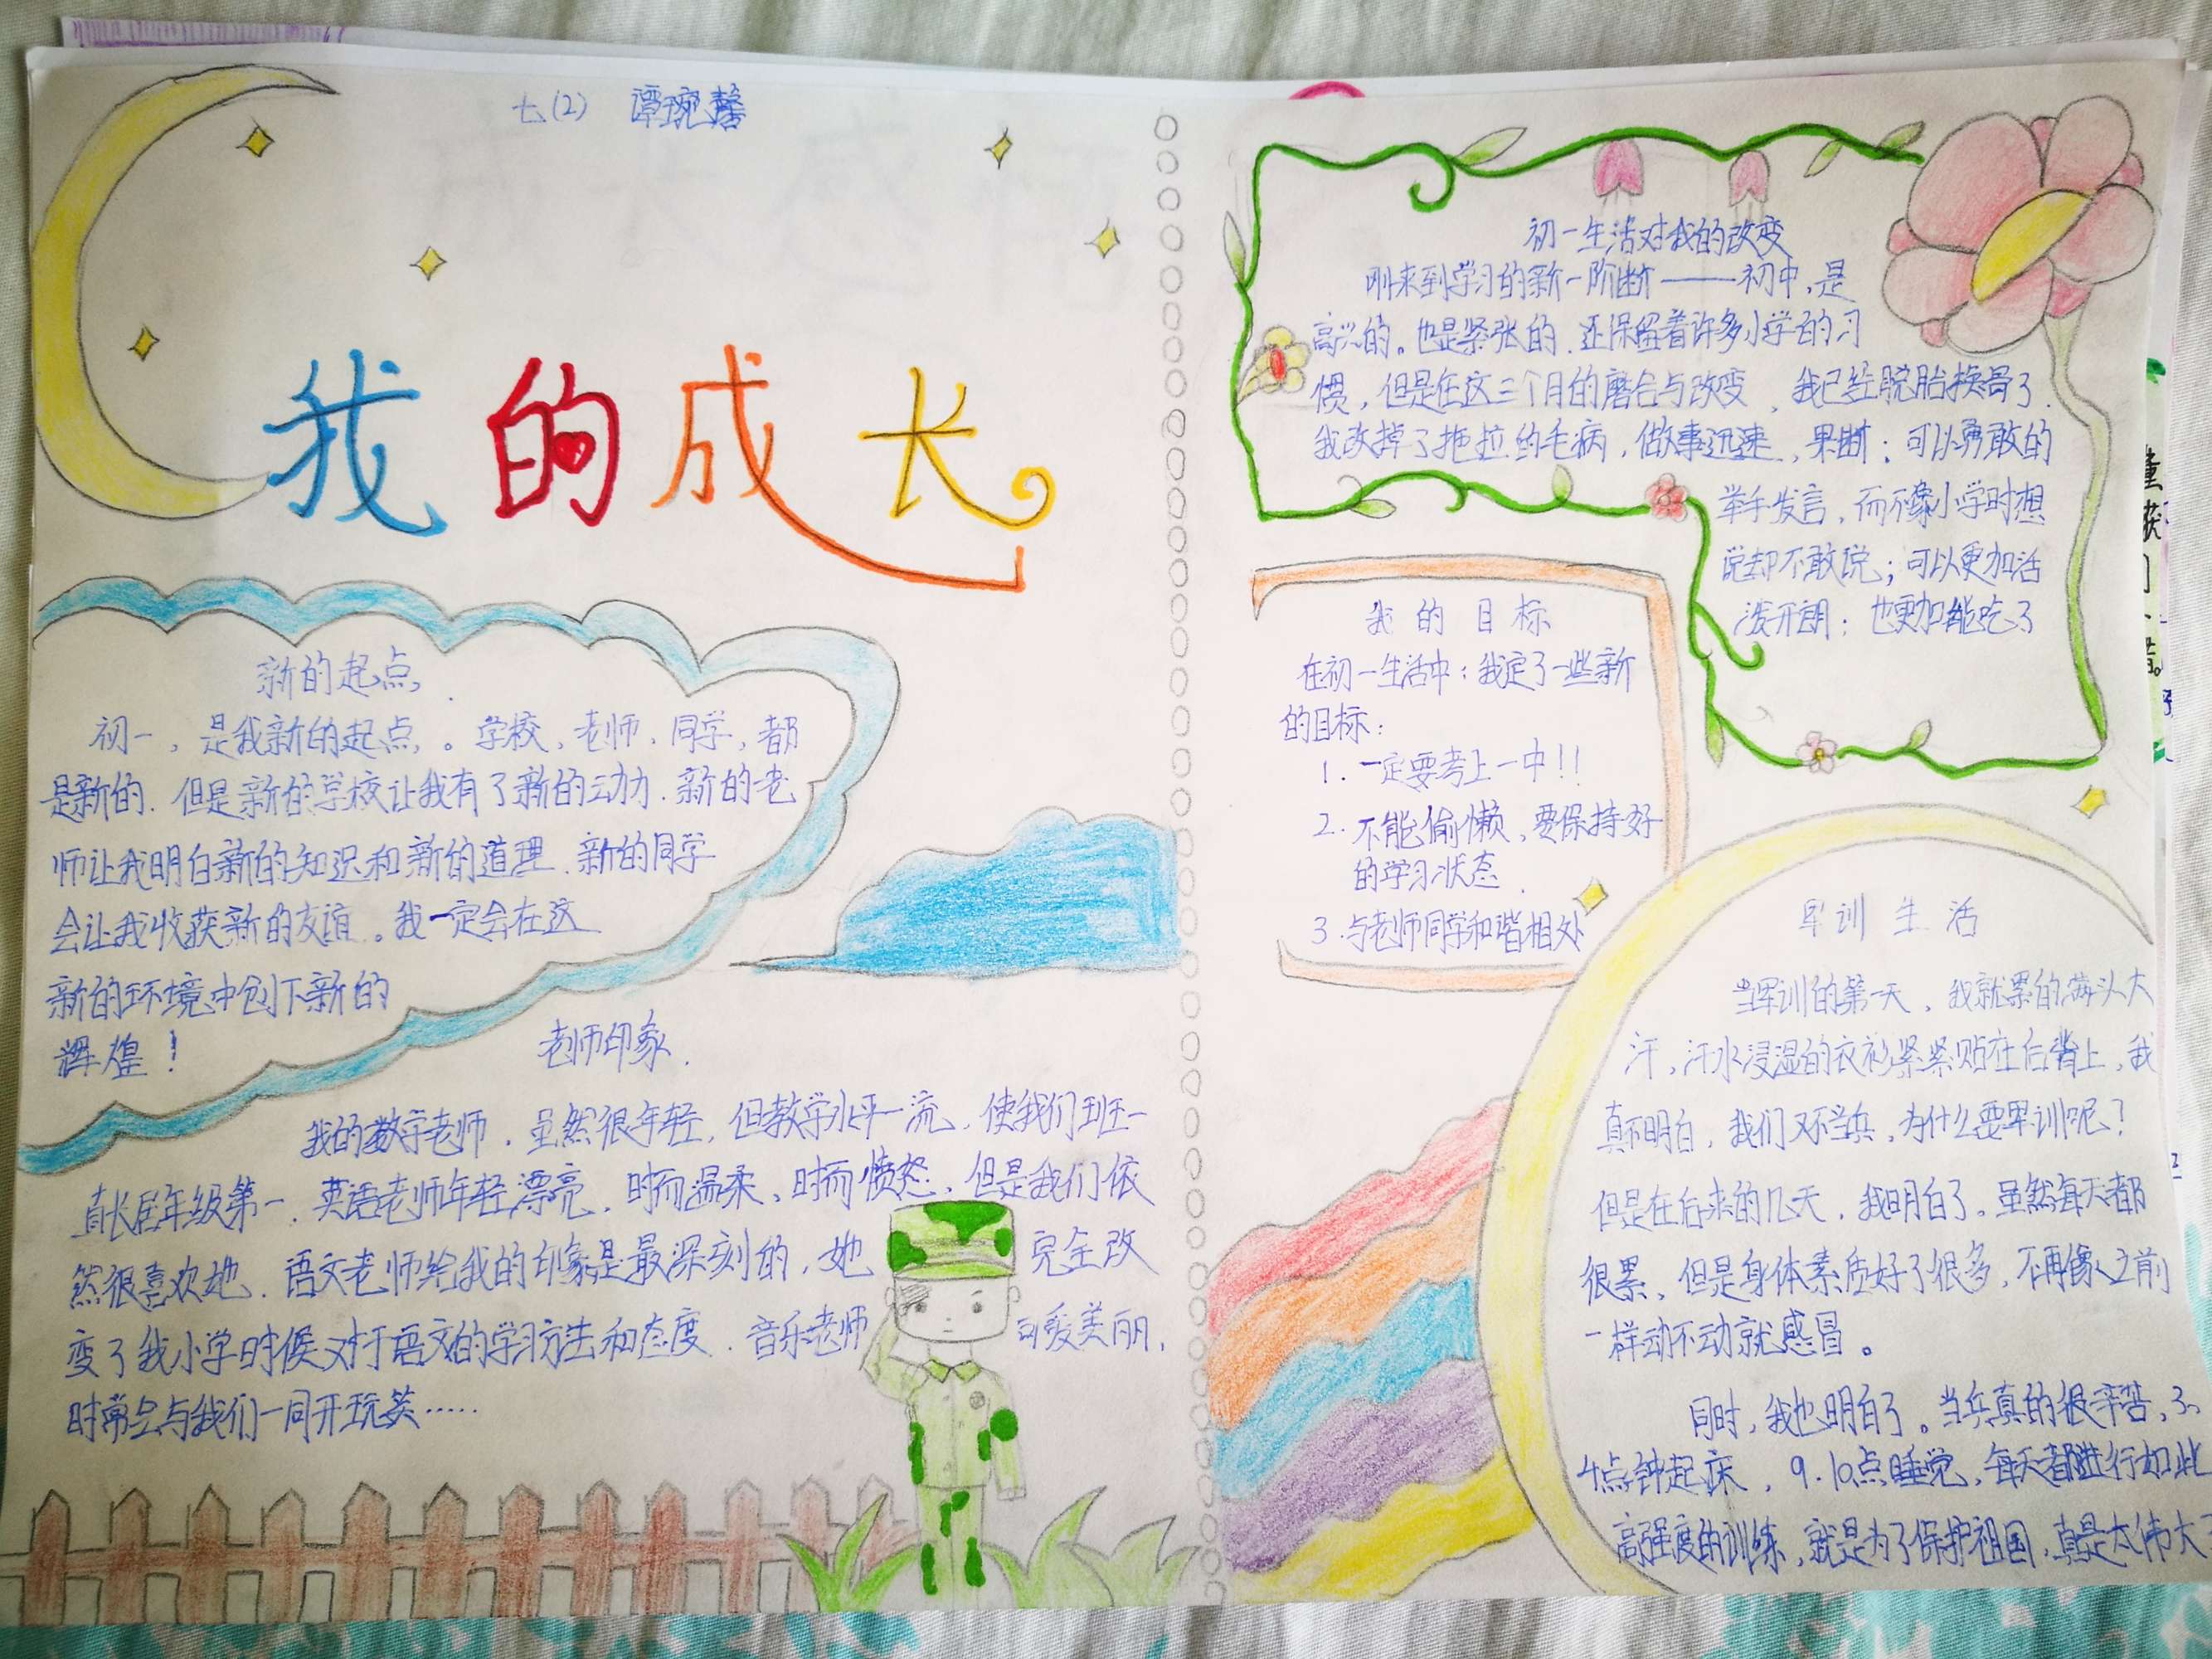 七(2) 谭琬馨
我的成长
新的起点
初一，是我新的起点。学校、老师、同学，都
是新的．但是新的学校让我有了新的动力．新的老
师让我明白新的知识和新的道理．新的同学
会让我收获新的友谊。我一定会在这
新的环境中创下新的
辉煌！
老师印象．
我的数学老师．虽然很年轻，但教学水平一流，使我们班一
直长居年级第一．英语老师年轻漂亮，时而温柔，时而愤怒，但是我们依
然很喜欢她．语文老师给我的印象是最深刻的，她 完全改
变了我小学时候对于语文的学习方法和态度．音乐老师 可爱美丽，
时常会与我们一同开玩笑……
初一生活对我的改变
刚来到学习的新一阶断——初中，是
高兴的。也是紧张的．还保留着许多小学的习
惯，但是在这三个月的磨合与改变，我已经脱胎换骨了．
我改掉了拖拉的毛病，做事迅速，果断；可以勇敢的
举手发言，而不像小学时想
说却不敢说；可以更加活
泼开朗；也更加能吃了
我的目标
在初一生活中：我定了一些新
的目标：
1．一定要考上一中！！
2．不能偷懒、要保持好
的学习状态．
3．与老师同学和谐相处
军训生活
当军训的第一天，我就累的满头大
汗，汗水浸湿的衣衫紧紧贴在后背上，我
真不明白，我们又不当兵，为什么要军训呢？
但是在后来的几天，我明白了。虽然每天都
很累，但是身体素质好了很多，不再像之前
一样动不动就感冒。
同时，我也明白了。当兵真的很辛苦，3、
4点钟起床，9、10点睡觉，每天都进行如此
高强度的训练，就是为了保护祖国，真是太伟大